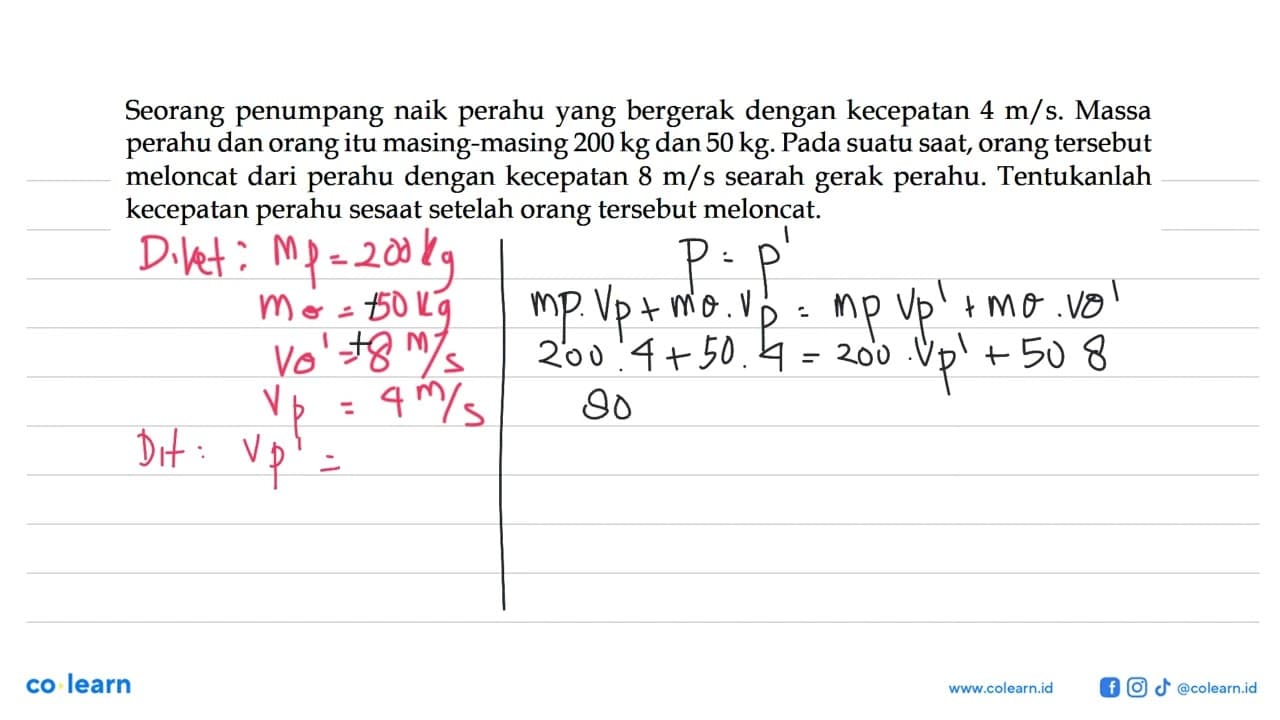 Seorang penumpang naik perahu yang bergerak dengan kecepatan 4 m/s. Massa
perahu dan orang itu masing-masing 200 kg dan 50 kg. Pada suatu saat, orang tersebut
meloncat dari perahu dengan kecepatan 8 m/s searah gerak perahu. Tentukanlah
kecepatan perahu sesaat setelah orang tersebut meloncat.
Diket : mp = 200 kg
mo = +50 kg
vo' = +8 m/s
vp = 4 m/s
Dit : vp' =
P = p'
mp. Vp + mo. Vp = mp Vp' + mo . vo'
200 . 4 + 50 . 4 = 200 . Vp' + 50 8
80
co·learn
www.colearn.id
@colearn.id